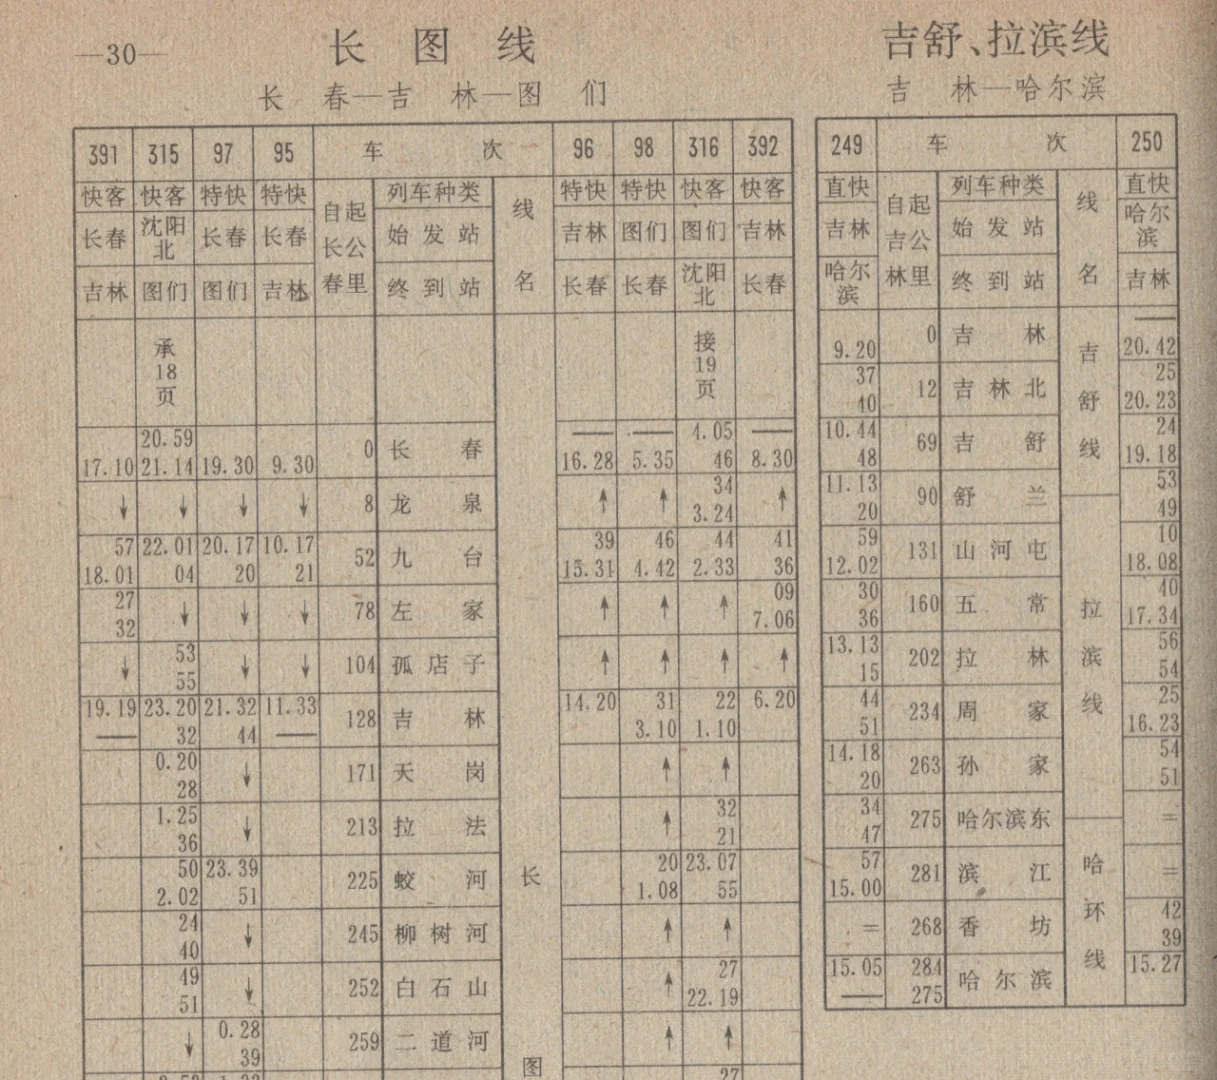 —30—
长 图 线
长 春—吉 林—图 们
391 315 97 95 车 次 96 98 316 392
快客 快客 特快 特快 自起长公春里 列车种类 线名 特快 特快 快客 快客
长春 沈阳北 长春 长春 始发站 吉林 图们 图们 吉林
吉林 图们 图们 吉林 终到站 长春 长春 沈阳北 长春
承18页 接19页
20.59 — — 4.05 —
17.10 21.14 19.30 9.30 0 长春 16.28 5.35 46 8.30
↓ ↓ ↓ ↓ 8 龙泉 ↑ ↑ 34 ↑
3.24
57 22.01 20.17 10.17 52 九台 39 46 44 41
18.01 04 20 21 15.31 4.42 2.33 36
27 ↓ ↓ ↓ 78 左家 ↑ ↑ ↑ 09
32 7.06
↓ 53 ↓ ↓ 104 孤店子 ↑ ↑ ↑ ↑
55
19.19 23.20 21.32 11.33 128 吉林 14.20 31 22 6.20
— 32 44 — 3.10 1.10
0.20 ↓ 171 天岗 ↑ ↑
28
1.25 ↓ 213 拉法 ↑ 32
36 21
50 23.39 225 蛟河 20 23.07
2.02 51 1.08 55
24 ↓ 245 柳树河 ↑ ↑
40
49 ↓ 252 白石山 ↑ 27
51 22.19
↓ 0.28 259 二道河 ↑ ↑
39
27
长
图
吉舒、拉滨线
吉 林—哈尔滨
249 车 次 250
直快 自起吉公林里 列车种类 线名 直快
吉林 始发站 哈尔滨
哈尔滨 终到站 吉林
0 吉林 吉舒线 —
9.20 20.42
37 12 吉林北 25
40 20.23
10.44 69 吉舒 24
48 19.18
11.13 90 舒兰 拉滨线 53
20 49
59 131 山河屯 10
12.02 18.08
30 160 五常 40
36 17.34
13.13 202 拉林 56
15 54
44 234 周家 25
51 16.23
14.18 263 孙家 54
20 51
34 275 哈尔滨东 哈环线 =
47
57 281 滨江 =
15.00
= 268 香坊 42
39
15.05 284 哈尔滨 15.27
— 275